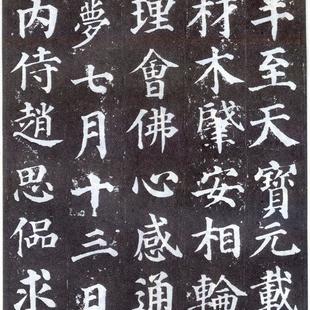 半至天寶元載
材木肇安相輪
理會佛心感通
夢七月十三日
内侍趙思偘求